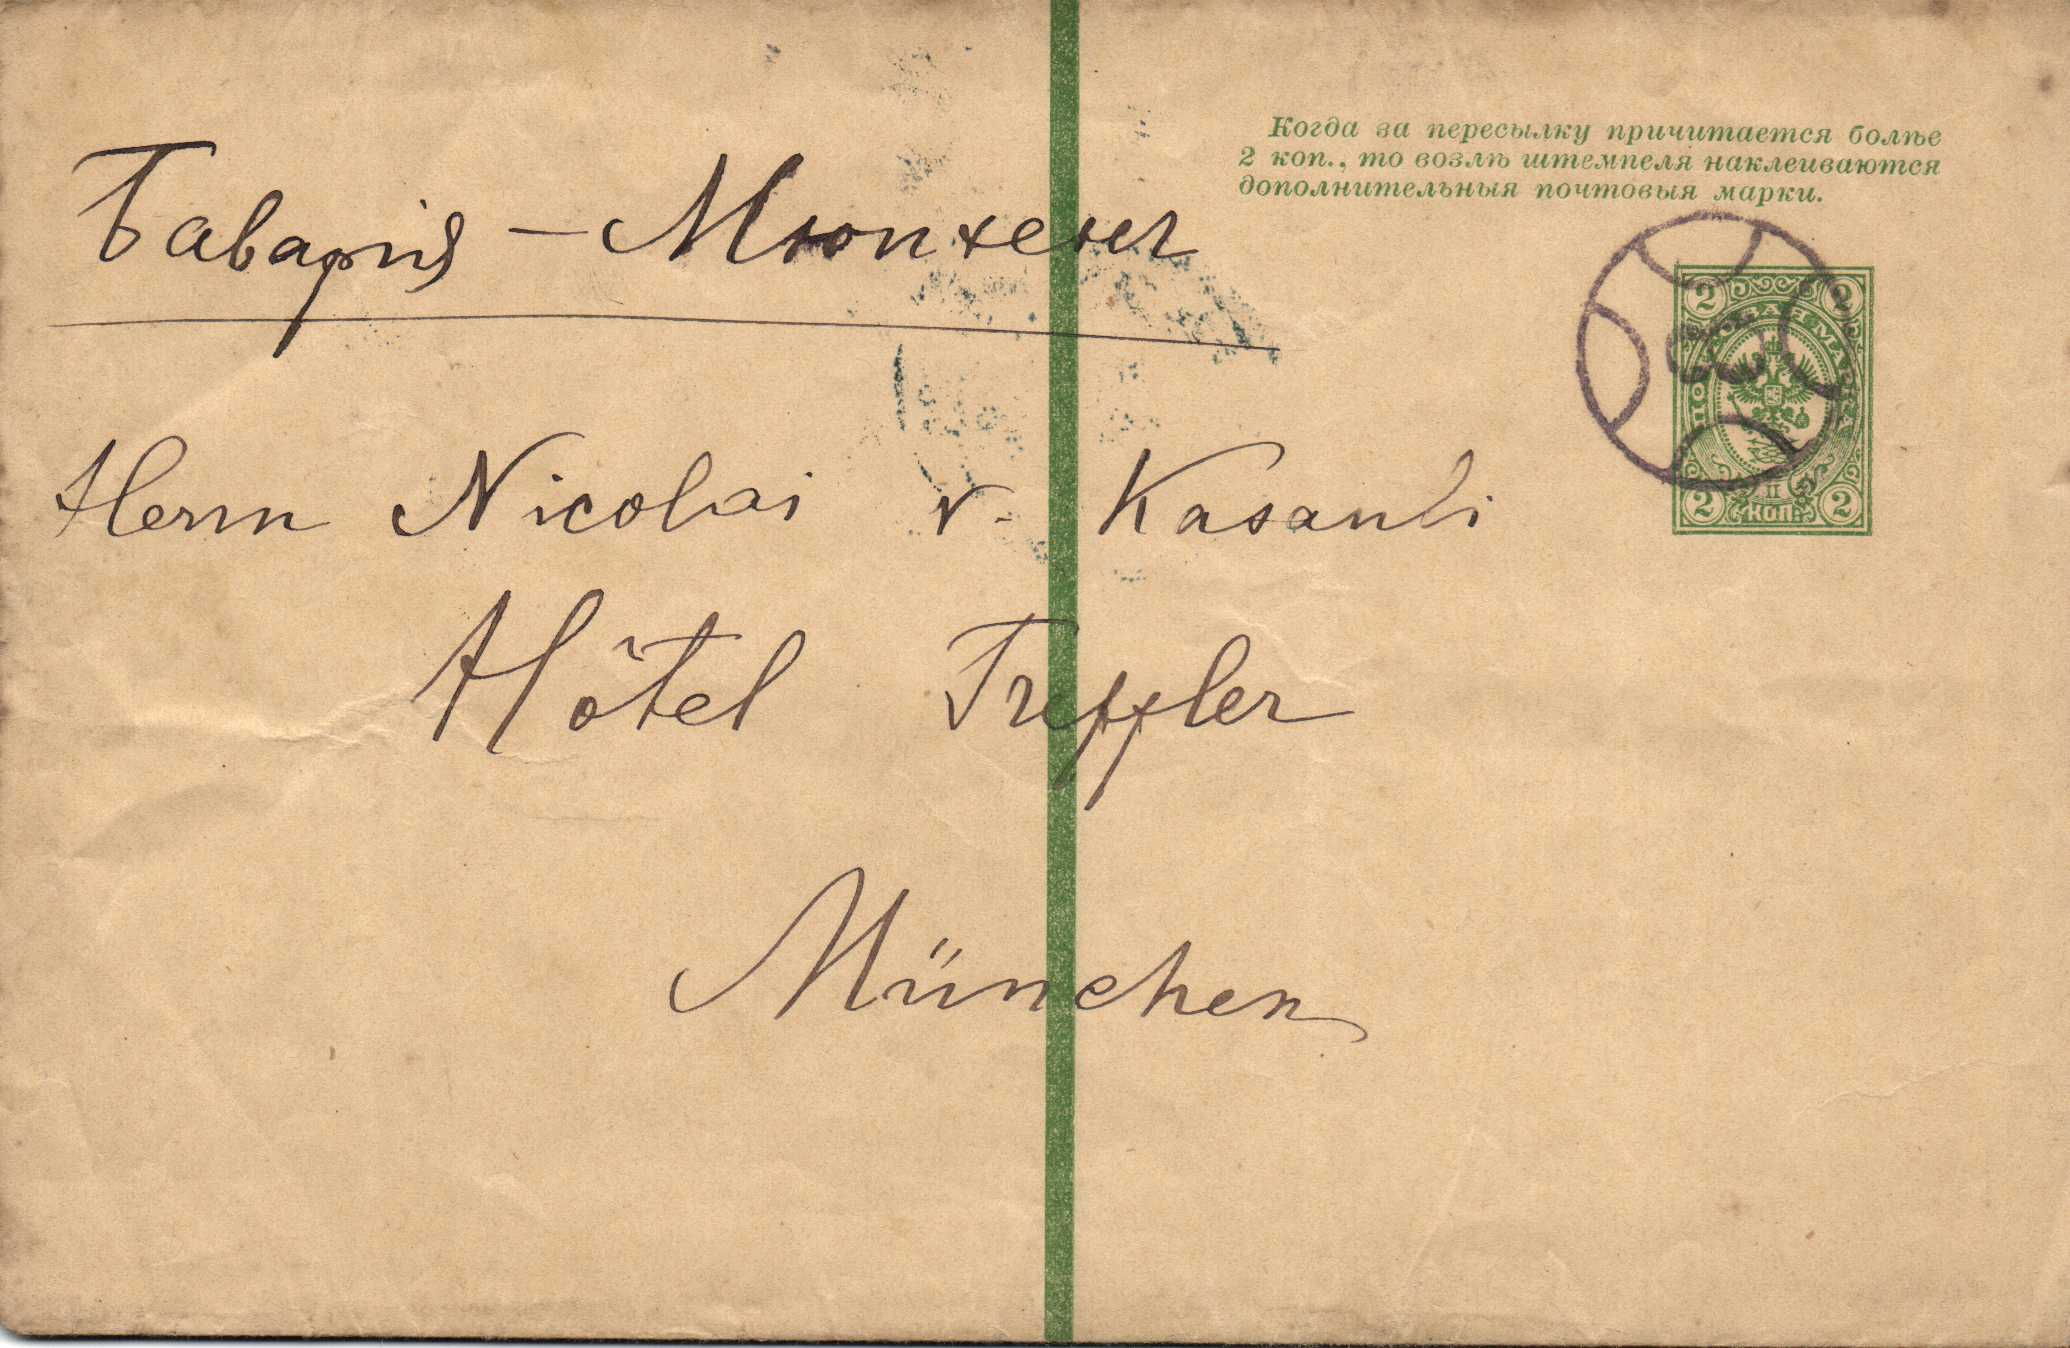 Когда за пересылку причитается болѣе
2 коп., то возлѣ штемпеля наклеиваются
дополнительныя почтовыя марки.
Баварія – Мюнхенъ
2 2
ПОЧТОВАЯ МАРКА
2 КОП. 2
Herrn Nicolai v. Kasanli
Hôtel Treffler
München